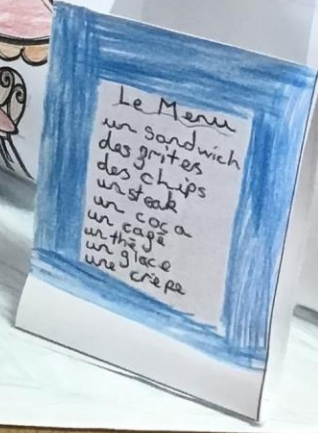 Le Menu
un sandwich
des grites
des chips
un steak
un coca
un cagé
un thé
un glace
une crêpe